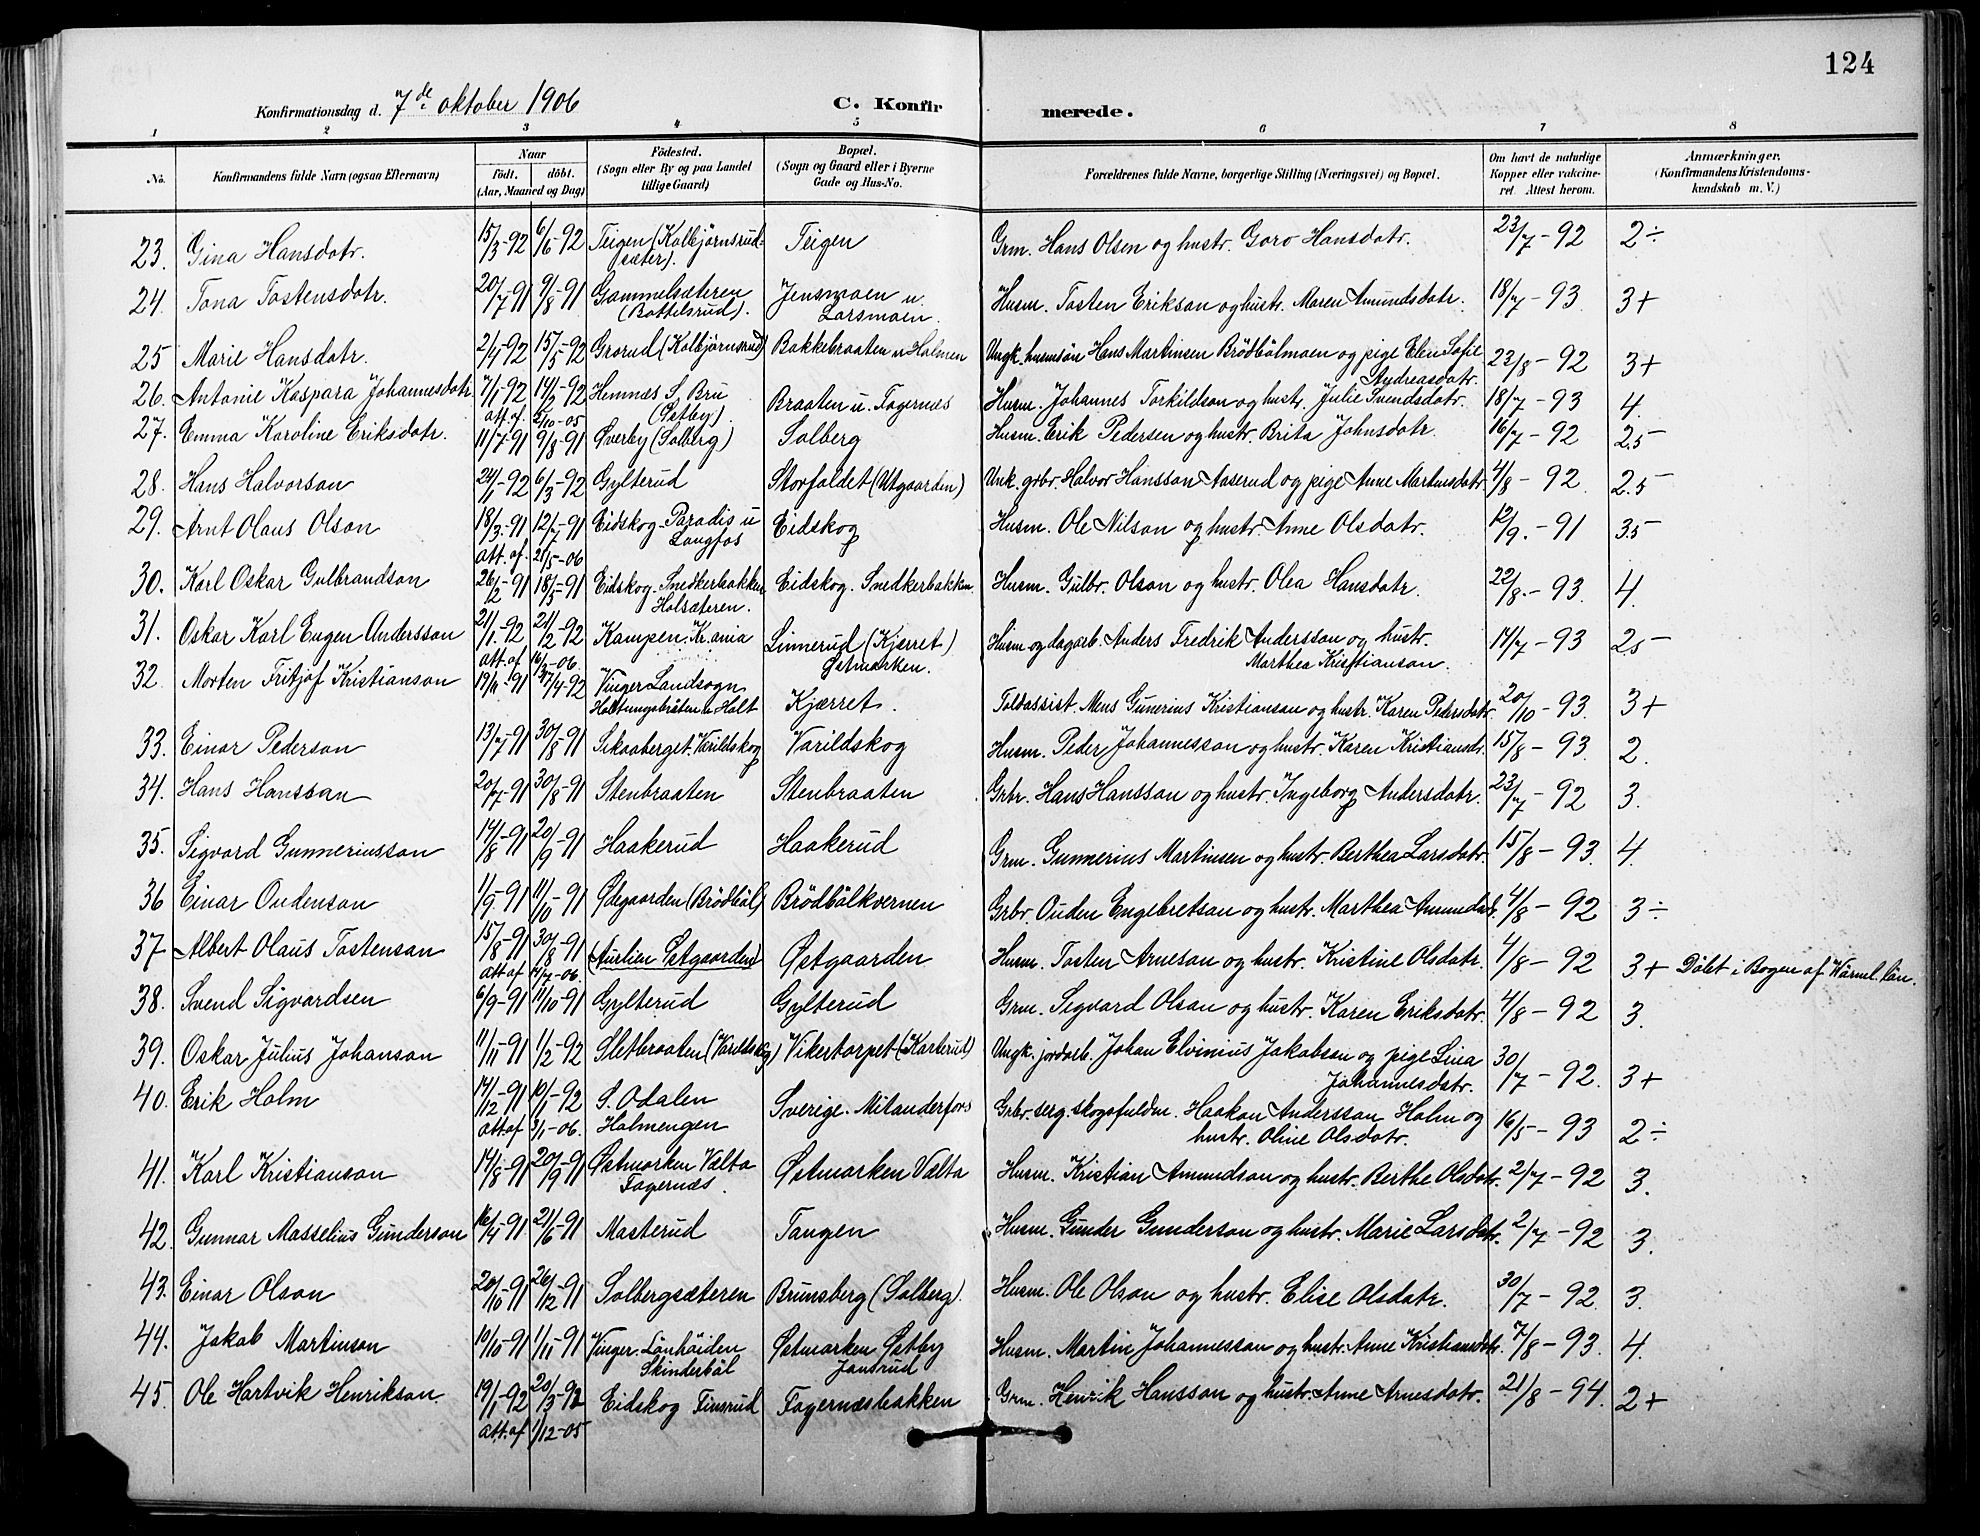 124
Konfirmationsdag d. 7de oktober 1906 C. Konfir merede.
1 2 3 4 5 6 7 8
No. Konfirmandens fulde Navn (ogsaa Efternavn) Naar födt. döbt. (Aar, Maaned og Dag) Födested. (Sogn eller By og paa Landet tillige Gaard) Bopæl. (Sogn og Gaard eller i Byerne Gade og Hus-No. Forældrenes fulde Navne, borgerlige Stilling (Næringsvei) og Bopæl. Om havt de naturlige Kopper eller vakcineret. Attest herom. Anmærkninger. (Konfirmandens Kristendomskundskab m. V.)
23. Gina Hansdatr. 15/3-92 6/5-92 Teigen (Kolbjörnsrud- Teigen Grm. Hans Olsen og hustr. Goro Hansdatr. 23/7-92 2÷
sæter).
24. Tona Tostensdatr. 20/7-91 9/8-91 Gammelsæteren Jensmoen u. Husm. Tosten Erikson og hustr. Maren Amundsdatr. 18/7-93 3+
(Bottelsrud). Larsmoen.
25 Marie Hansdatr. 2/4-92 15/5-92 Grorud (Kolbjörnsrud) Bakkebraaten u Holmen Ungk. husmsön Hans Martinsen Brödbölmoen og pige Elen Sofie 23/8-92 3+
Andreasdatr.
26. Antonie Kaspara Johannesdatr. 7/1-92 14/2-92 Hemnæs S. Bru Braaten u. Fagernæs Husm. Johannes Torkildson og hustr. Julie Svendsdatr. 18/7-93 4.
att. af. 5/10-05 (Østby).
27. Emma Karoline Eriksdatr. 11/7-91 9/8-91 Øverby (Solberg) Solberg Husm. Erik Pedersen og hustr. Brita Johnsdatr. 16/7-92 2.5-
28. Hans Halvorson 24/1-92 6/3-92 Gylterud Storfaldet (Utgaarden) Unk. grbr. Halvor Hansson Aaserud og pige Anne Martinsdatr 4/8-92 2.5-
29. Arnt Olaus Olson 18/3-91 12/7-91 Eidskog-Paradis u Eidskog Husm. Ole Nilson og hustr. Anne Olsdatr. 12/9.-91 3.5-
att. af. 21/5-06 Langfos
30. Karl Oskar Gulbrandson 26/2-91 18/5-91 Eidskog-Snedkerbakken Eidskog. Snedkerbakken. Husm. Gulbr. Olson og hustr. Olea Hansdatr. 22/8.-93. 4.
Holsæteren.
31. Oskar Karl Eugen Andersson 21/1-92 21/2-92 Kampen. Kr.ania Linnerud (Kjerret) Husm og dagarb. Anders Fredrik Andersson og hustr. 14/7-93 2.5-
att. af 16/3-06. Østmarken. Marthea Kristianson.
32 Morten Fritjof Kristianson 19/11-91 17/4-92 Vinger Landsogn Kjærret. Toldassist. Mens Gunerius Kristianson og hustr. Karen Pedersdatr. 20/10-93. 3+
Holtungsbråten u. Holt
33. Einar Pederson 13/7-91 30/8-91 Skaaberget. Varildskog Varildskog Husm. Peder Johannesson og hustr. Karen Kristiansdr. 15/8-93. 2.
34. Hans Hansson 20/7-91 30/8-91 Stenbraaten Stenbraaten Grbr. Hans Hansson og hustr. Ingeborg Andersdatr. 23/7-92 3.
35. Sigvard Gunneriusson 14/8-91 20/9-91 Haakerud Haakerud Grm. Gunnerius Martinsen og hustr. Berthea Larsdatr. 15/8-93 4.
36 Einar Oudenson 1/9-91 11/10-91 Ødegaarden (Brödböl) Brödbölkvernen Grbr. Ouden Engebretson og hustr. Marthea Amundsdr. 4/8-92 3÷
37 Albert Olaus Tostenson 15/8-91 30/8-91 (Aurlien Østgaarden) Østgaarden Husm. Tosten Arneson og hustr. Kristine Olsdatr. 4/8-92 3+ Döbt i Bogen af Wärml. län.
att af 14/7-06.
38. Svend Sigvardsen 6/9-91 11/10-91 Gylterud Gylterud Grm. Sigvard Olson og hustr. Karen Eriksdatr. 4/8-92 3.
39. Oskar Julius Johanson 11/11-91 1/2-92 Sletbraaten (Varildskog) Vikertorpet (Karterud) Ungk. jordarb. Johan Elvinius Jakobson og pige Lina 30/7-92. 3+
Johannesdatr.
40. Erik Holm 14/12-91 10/1-92 S. Odalen Sverige. Mitanderfors Grbr. serg. skogsfuldm. Haakon Andersson Holm og 16/5-93 2÷
att. af 3/1-06. Holmengen hustr. Oline Olsdatr.
41. Karl Kristianson 14/8-91 20/9-91 Østmarken Vælta Østmarken Vælta Husm. Kristian Amundson og hustr. Berthe Olsdatr. 2/7-92 3.
Fagernæs.
42. Gunnar Masselius Gunderson 16/4-91 21/6-91 Masterud Tangen Husm. Gunder Gunderson og hustr. Marie Larsdatr. 2/7-92 3.
43. Einar Olson 20/10-91 26/12-91 Solbergsæteren Brunsberg (Solberg). Husm. Ole Olson og hustr. Elise Olsdatr. 30/7-92. 3.
44. Jakob Martinson 10/10-91 1/11-91 Vinger. Lönhöiden Østmarken Østby Husm. Martin Johannesson og hustr. Anne Kristiansdatr. 7/8-93. 4.
Skinderböl Jansrud
45. Ole Hartvik Henrikson. 19/1-92 20/3-92 Eidskog Finsrud Fagernæsbakken Grm. Henrik Hansson og hustr. Anne Arnesdatr. 21/8-94. 2+
att. af 1/12-05